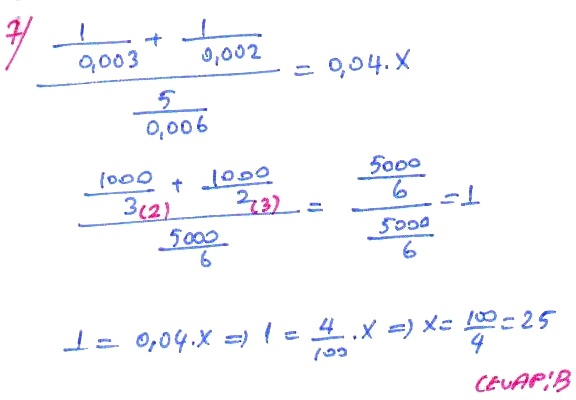 7/ (1/0,003 + 1/0,002) / (5/0,006) = 0,04.X
(1000/3(2) + 1000/2(3)) / (5000/6) = (5000/6) / (5000/6) = 1
1 = 0,04.X => 1 = 4/100 . X => X = 100/4 = 25
CEVAP:B